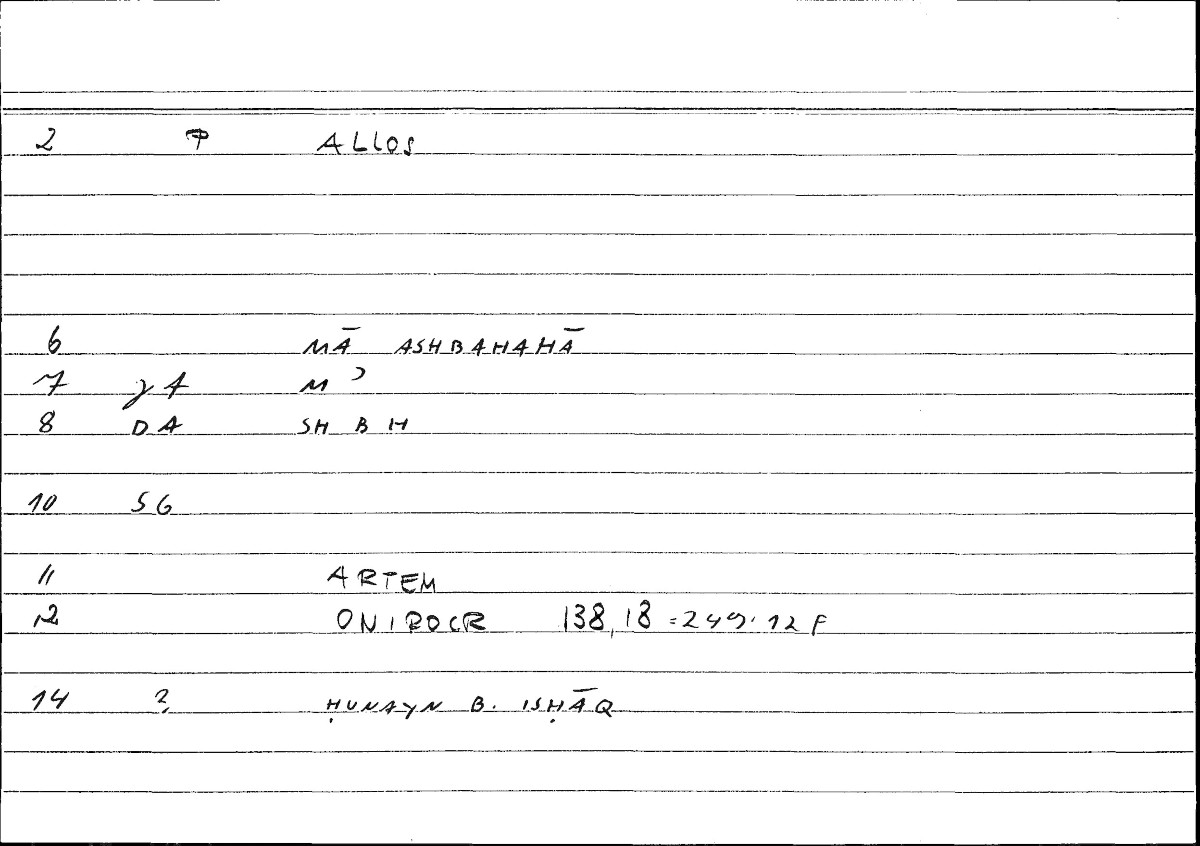 2 ALLOS
6 MĀ ASHBAHAHĀ
7 M ʾ
8 DA SH B H
10 SG
11 ARTEM
12 ONIROCR 138,18 = 249.12 F
14 ? ḤUNAYN B. ISḤĀQ